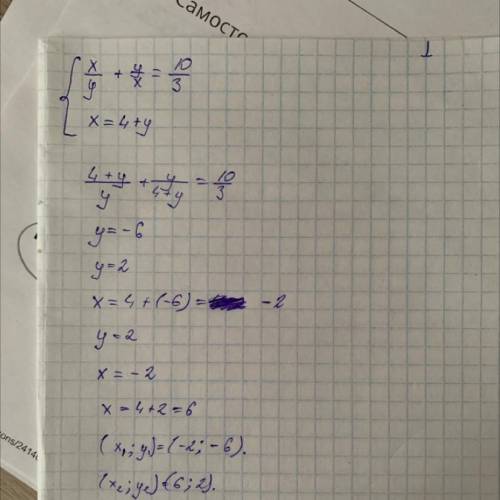 Самосто
1
x/y + y/x = 10/3
x = 4 + y
(4+y)/y + y/(4+y) = 10/3
y = -6
y = 2
x = 4 + (-6) = -2
y = 2
x = -2
x = 4+2 = 6
(x₁; y₁) = (-2; -6).
(x₂; y₂) = (6; 2).
ons/2414